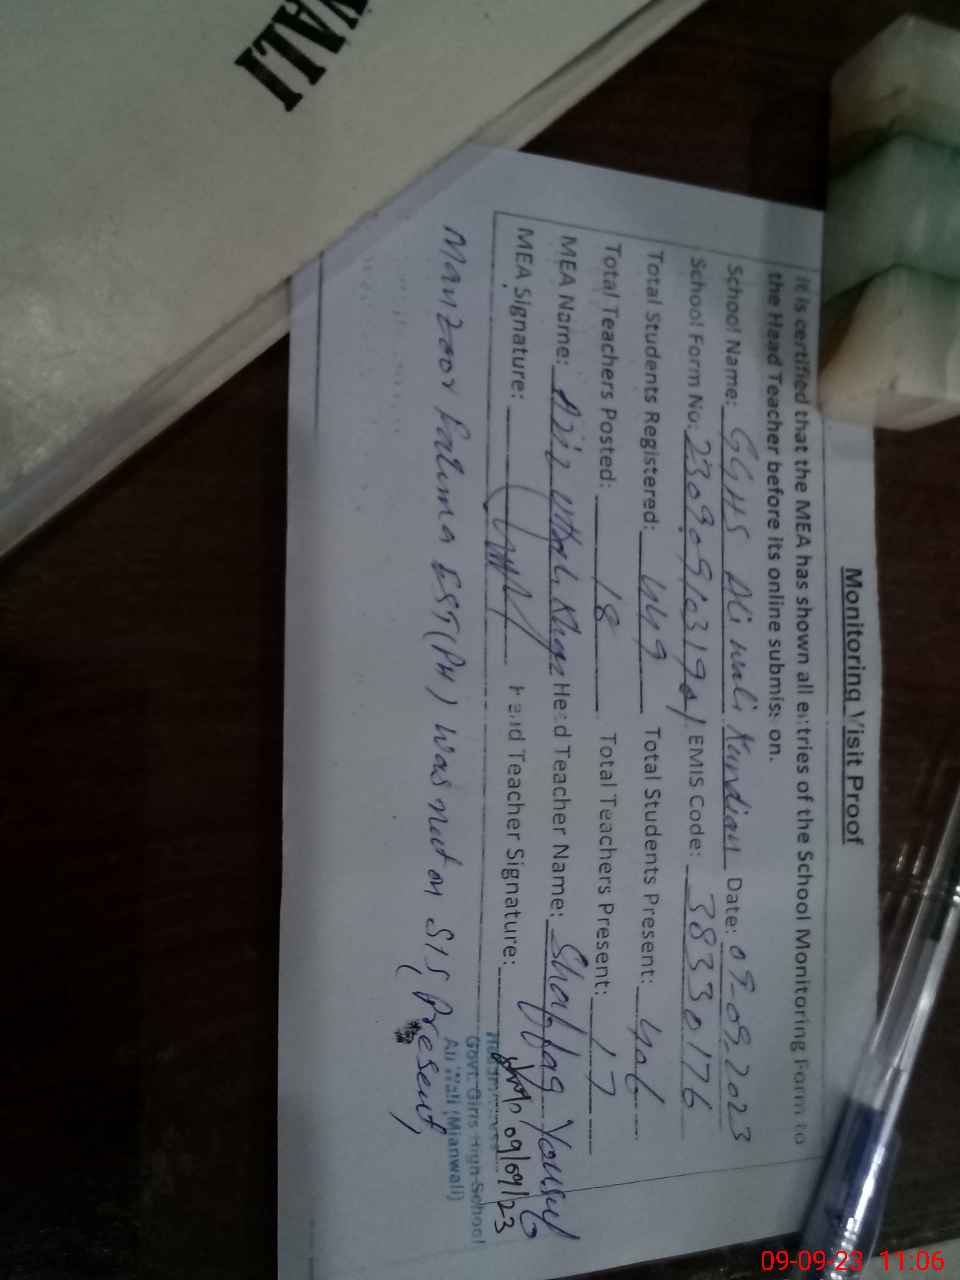 WALI
Monitoring Visit Proof
It is certified that the MEA has shown all entries of the School Monitoring Form to
the Head Teacher before its online submission.
School Name: GGHS Ali wali Kundian Date: 09-09-2023
School Form No: EMIS Code: 38330176
Total Students Registered: 449 Total Students Present: 406
Total Teachers Posted: 18 Total Teachers Present: 17
MEA Name: Head Teacher Name: Shaffaq Yousuf
MEA Signature: Head Teacher Signature: 09/09/23
Headmistress
Govt. Girls High School
Ali Wali (Mianwali)
Manzoor Fatima EST(PH) was not on SIS (Present)
09-09-23 11:06